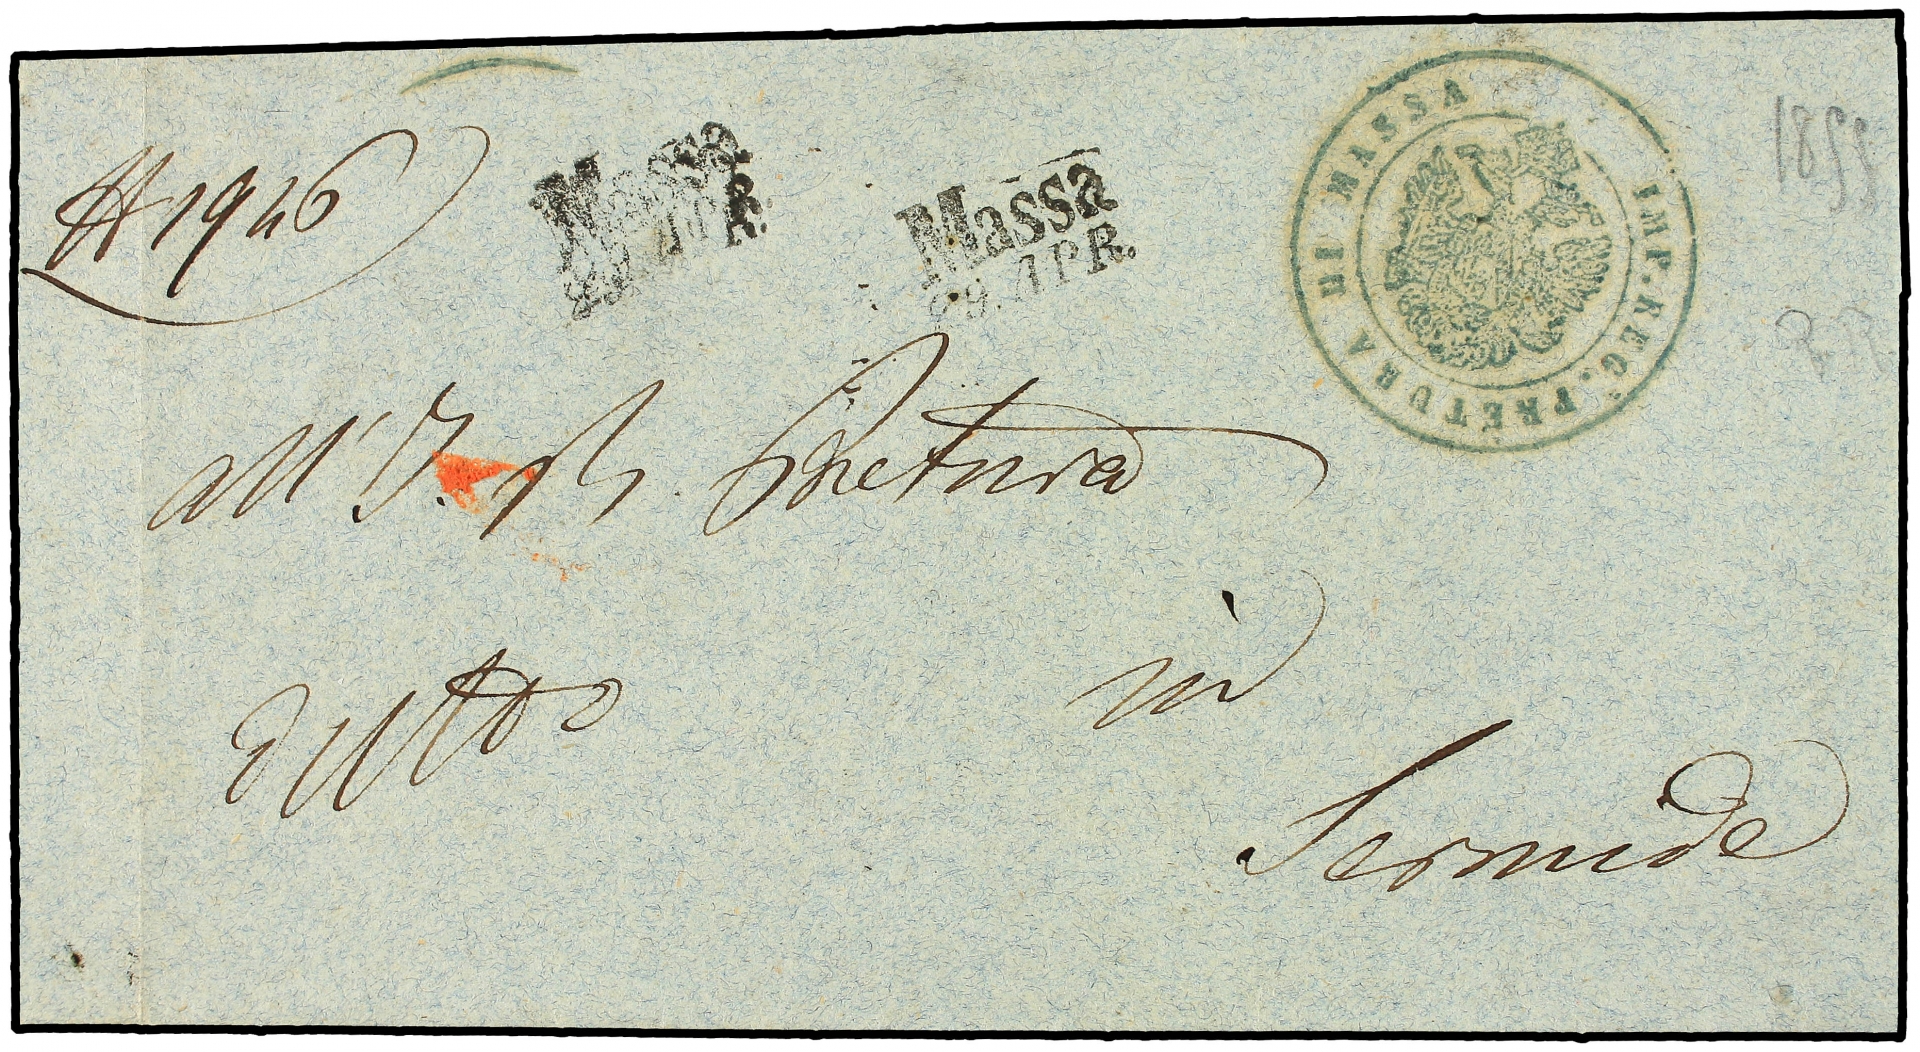 1946
Massa
29. APR.
Massa
29. APR.
IMP. REG. PRETURA DI MASSA
all' I. R. Pretura
in
Sermide